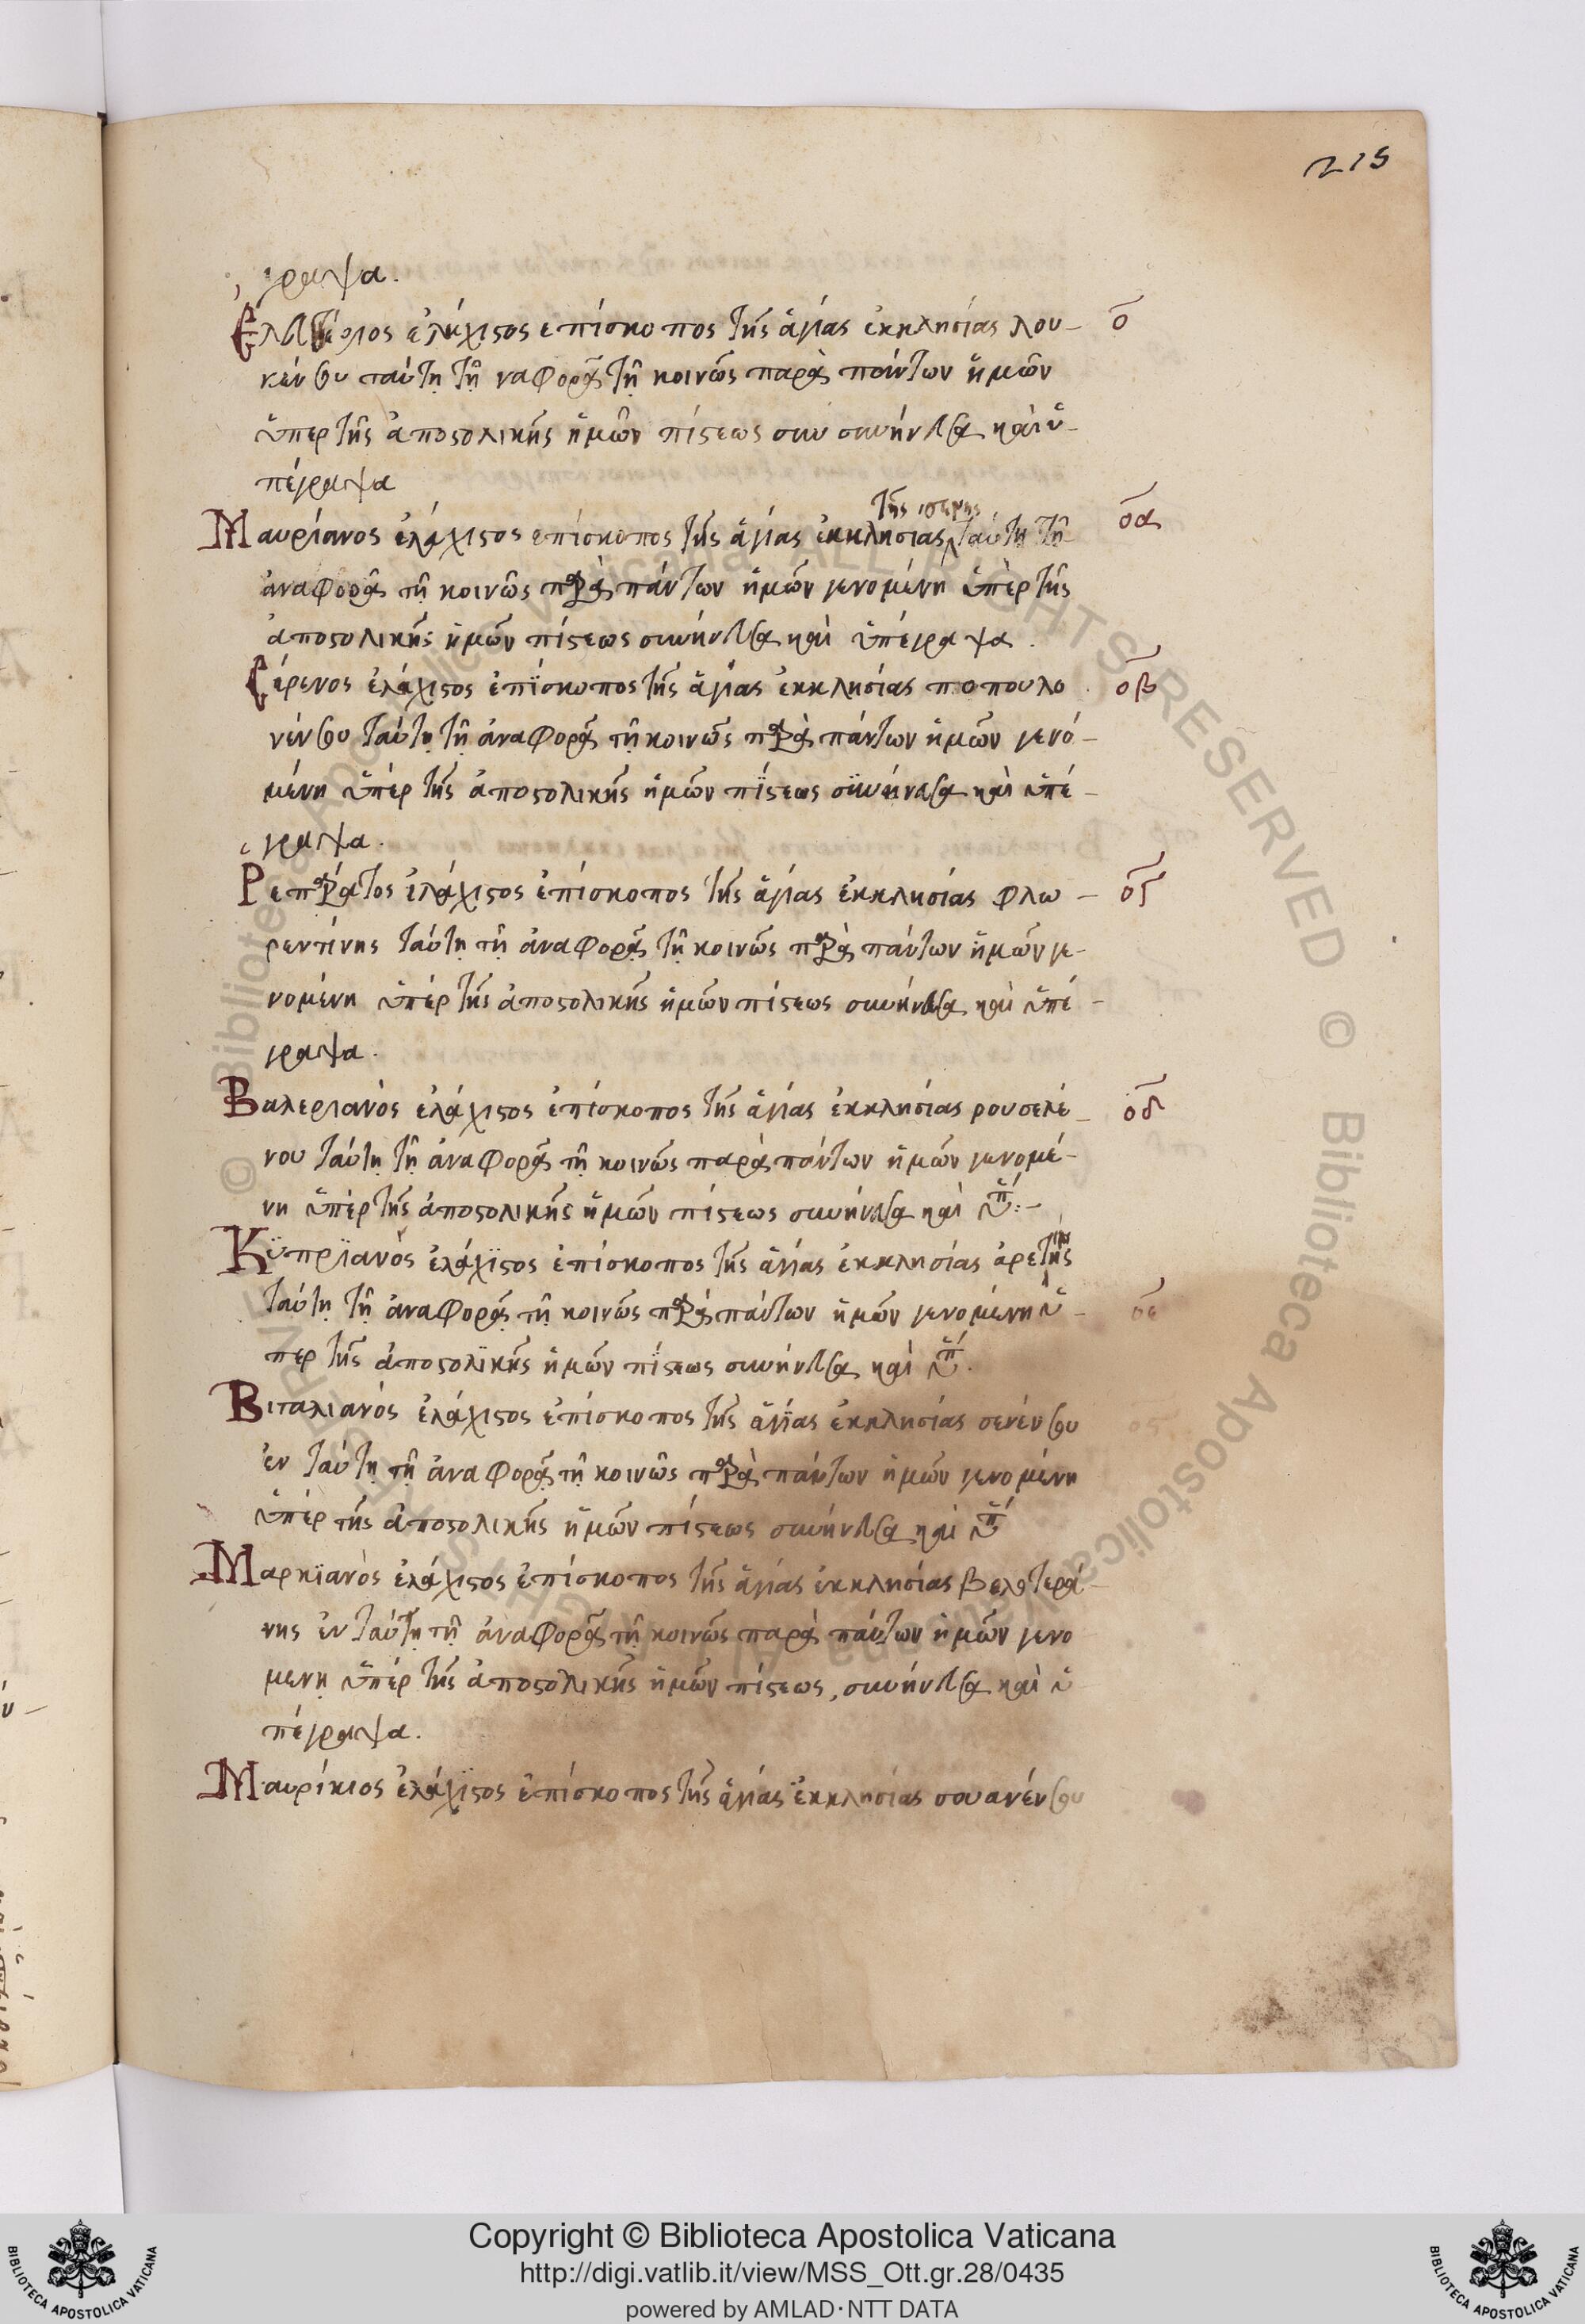 215
γραψα.
Ελευθέριος ἐλάχιστος επίσκοπος τῆς ἁγίας ἐκκλησίας λου- ο
κένσου ταύτῃ τῇ ναφορᾷ τῇ κοινῶς παρὰ πάντων ἡμῶν
ὑπερ τῆς ἀποστολικῆς ἡμῶν πίστεως συν συνήνεσα καὶ ὑ-
πέγραψα
Μαυρίανος ἐλάχιστος επίσκοπος τῆς ἁγίας ἐκκλησιας ταύτῃ τῇ οα
τῆς
ἀναφορᾷ τῇ κοινῶς παρὰ πάντων ἡμῶν γενομένη ὑπὲρ τῆς
ἀποστολικῆς ἡμῶν πίστεως συνήνεσα καὶ ὑπέγραψα.
Σέρενος ἐλάχιστος ἐπίσκωπος τῆς ἁγίας ἐκκλησίας ποπουλο οβ
νένσου ταύτῃ τῇ ἀναφορᾷ τῇ κοινῶς παρὰ πάντων ἡμῶν γενό-
μένη ὑπέρ τῆς ἀποστολικῆς ἡμῶν πίστεως συνήνεσα καὶ ὑπέ-
γραψα.
Ρεπαράτος ἐλάχιστος ἐπίσκοπος τῆς ἁγίας ἐκκλησίας φλω- ογ
ρεντίνης ταύτῃ τῇ ἀναφορᾷ τῇ κοινῶς παρὰ πάντων ἡμῶν γε-
νομένη ὑπέρ τῆς ἀποστολικῆς ἡμῶν πίστεως συνήνεσα καὶ ὑπέ-
γραψα.
Βαλεριανὸς ἐλάχιστος ἐπίσκοπος τῆς ἁγίας ἐκκλησίας ρουσελέ- οδ
νου ταύτῃ τῇ ἀναφορᾷ τῇ κοινῶς παρὰ πάντων ἡμῶν γενομέ-
νη ὑπὲρ τῆς ἀποστολικῆς ἡμῶν πίστεως συνήνεσα καὶ ὑπ:-
Κϋπρϊανὸς ἐλάχϊστος ἐπίσκοπος τῆς ἁγίας ἐκκλησίας ἀρετηνῆς
ταύτῃ τῇ ἀναφορᾷ τῇ κοινῶς παρὰ πάντων ἡμῶν γενομένη ὑ- οε
περ τῆς ἀποστολϊκῆς ἡμῶν πίστεως συνήνεσα καὶ ὑπ.
Βιταλιανός ἐλάχιστος ἐπίσκοπος τῆς ἁγίας ἐκκλησίας σενένσου ος
ἐν ταύτῃ τῇ ἀναφορᾷ τῇ κοινῶς παρὰ πάντων ἡμῶν γενομένη
ὑπέρ τῆς ἀποστολικῆς ἡμῶν πίστεως συνήνεσα καὶ ὑπ
Μαρκϊανὸς ἐλάχιστος ἐπίσκοπος τῆς ἁγίας ἐκκλησίας βελατερά-
νης ἐν ταύτῃ τῇ ἀναφορᾷ τῇ κοινῶς παρὰ πάντων ἡμῶν γενο
μενη ὑπέρ τῆς ἀποστολικῆς ἡμῶν πίστεως, συνήνεσα καὶ ὑ
πέγραψα.
Μαυρίκιος ἐλάχϊστος ἐπίσκοπος τῆς ἁγίας ἐκκλησίας σουανένσου
© Biblioteca Apostolica Vaticana ALL RIGHTS RESERVED
Copyright © Biblioteca Apostolica Vaticana
http://digi.vatlib.it/view/MSS_Ott.gr.28/0435
powered by AMLAD·NTT DATA
BIBLIOTECA APOSTOLICA VATICANA
BIBLIOTECA APOSTOLICA VATICANA